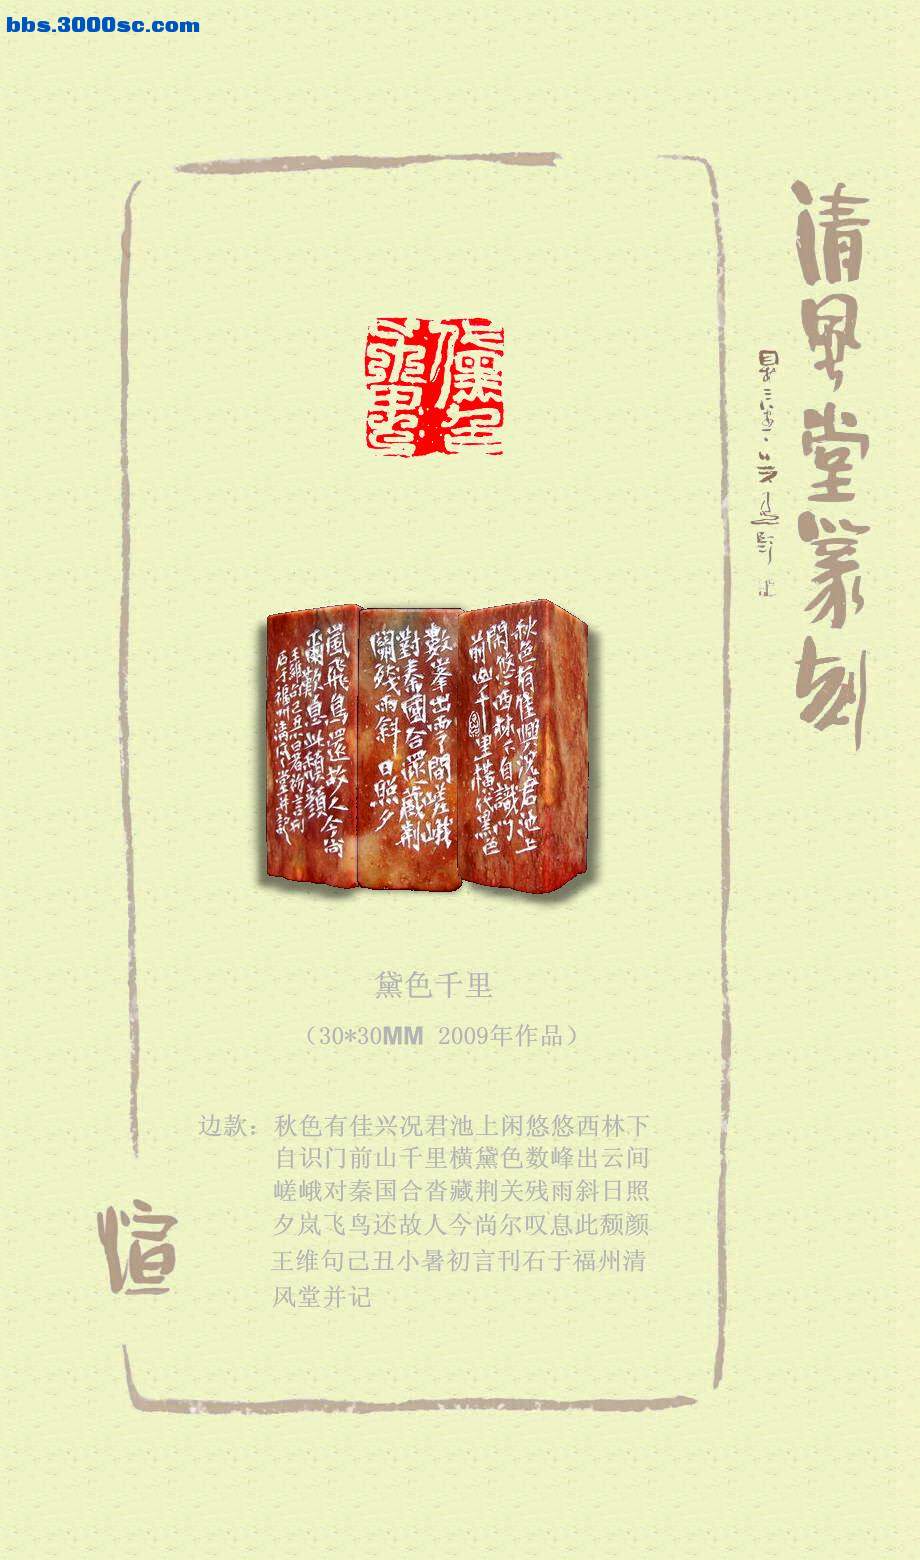 bbs.3000sc.com
清風堂篆刻
秋色有佳興況君池上
閑悠悠西林下自識門
前山千里橫黛色
數峯出雲間嵯峨
對秦國合沓藏荊
關殘雨斜日照夕
嵐飛鳥還故人今尚
爾歎息此頹顏
王維句己丑小暑初言刊
石于福州清風堂并記
黛色千里
（30*30MM 2009年作品）
边款：秋色有佳兴况君池上闲悠悠西林下
自识门前山千里横黛色数峰出云间
嵯峨对秦国合沓藏荆关残雨斜日照
夕岚飞鸟还故人今尚尔叹息此颓颜
王维句己丑小暑初言刊石于福州清
风堂并记
愃